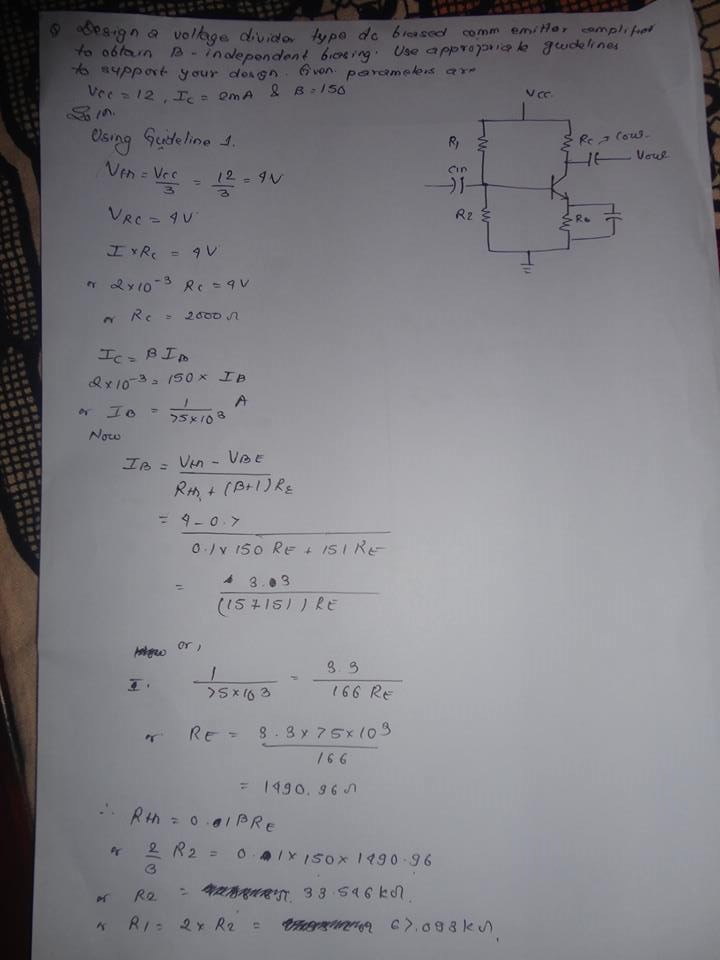 Q Design a voltage divider type dc biased comm emitter amplifier
to obtain B-independent biasing. Use appropriate guidelines
to support your design. Given parameters are
Vcc = 12, Ic = 2mA & B = 150
Soln.
Using Guideline 1.
Vth = Vcc/3 = 12/3 = 4V
VRC = 4V
I × Rc = 4V
or 2×10⁻³ Rc = 4V
or Rc = 2000Ω
Vcc
R1
Rc
Cout
Vout
Cin
R2
Ic = βIB
2×10⁻³ = 150 × IB
or IB = 1/75×10³ A
Now
IB = Vth - VBE / Rth + (β+1)RE
= 4-0.7 / 0.1×150 RE + 151 RE
= 3.3 / (15+151) RE
or,
1/75×10³ = 3.3/166 RE
or RE = 3.3×75×10³/166
= 1490.96Ω
∴ Rth = 0.1βRE
or 2/3 R2 = 0.1×150×1490.96
or R2 = 33.546kΩ.
or R1 = 2×R2 = 67.093kΩ